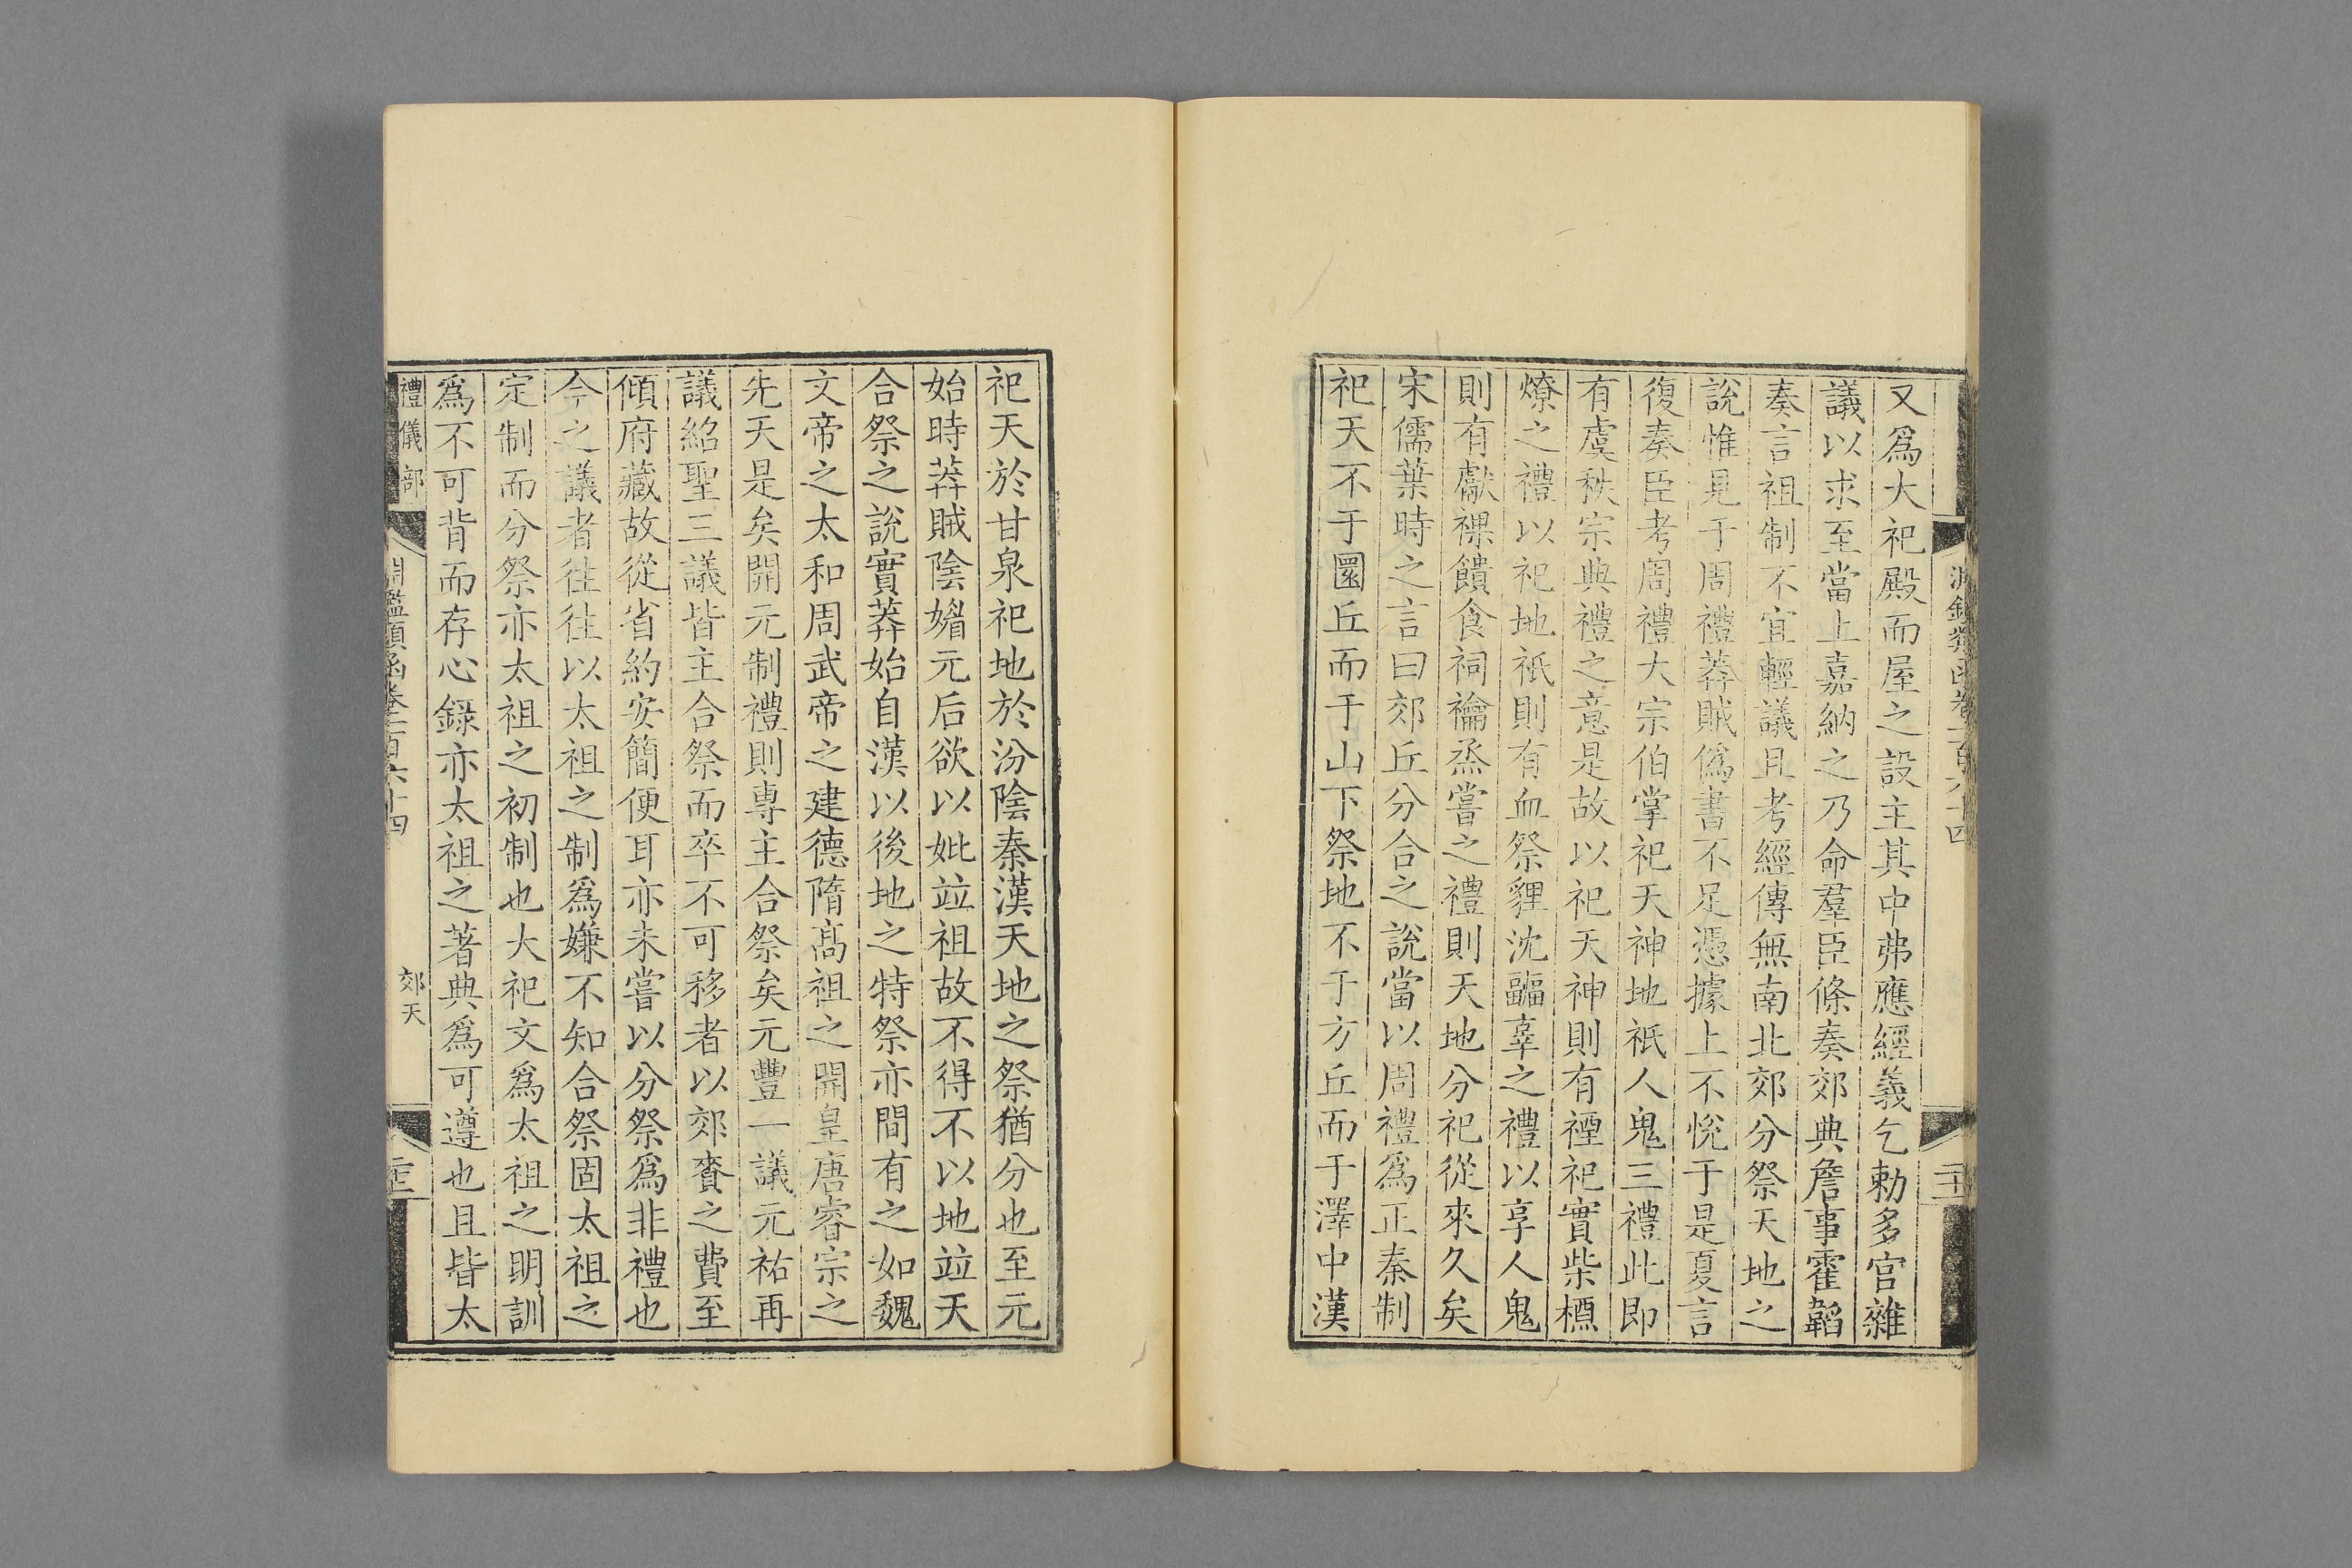 又爲大祀殿而屋之設主其中弗應經義乞勅多官雜
議以求至當上嘉納之乃命羣臣條奏郊典詹事霍韜
奏言祖制不宜輕議且考經傳無南北郊分祭天地之
說惟見于周禮莽賊僞書不足憑據上不悅于是夏言
復奏臣考周禮大宗伯掌祀天神地祇人鬼三禮此即
有虞秩宗典禮之意是故以祀天神則有禋祀實柴槱
燎之禮以祀地祇則有血祭貍沈疈辜之禮以享人鬼
則有獻祼饋食祠禴烝嘗之禮則天地分祀從來久矣
宋儒葉時之言曰郊丘分合之說當以周禮爲正秦制
祀天不于圜丘而于山下祭地不于方丘而于澤中漢
祀天於甘泉祀地於汾陰秦漢天地之祭猶分也至元
始時莽賊陰媚元后欲以妣竝祖故不得不以地竝天
合祭之說實莽始自漢以後地之特祭亦間有之如魏
文帝之太和周武帝之建德隋高祖之開皇唐睿宗之
先天是矣開元制禮則專主合祭矣元豐一議元祐再
議紹聖三議皆主合祭而卒不可移者以郊賚之費至
傾府藏故從省約安簡便耳亦未嘗以分祭爲非禮也
今之議者往往以太祖之制爲嫌不知合祭固太祖之
定制而分祭亦太祖之初制也大祀文爲太祖之明訓
爲不可背而存心錄亦太祖之著典爲可遵也且皆太
禮儀部
淵鑑類函卷一百六十四
郊天